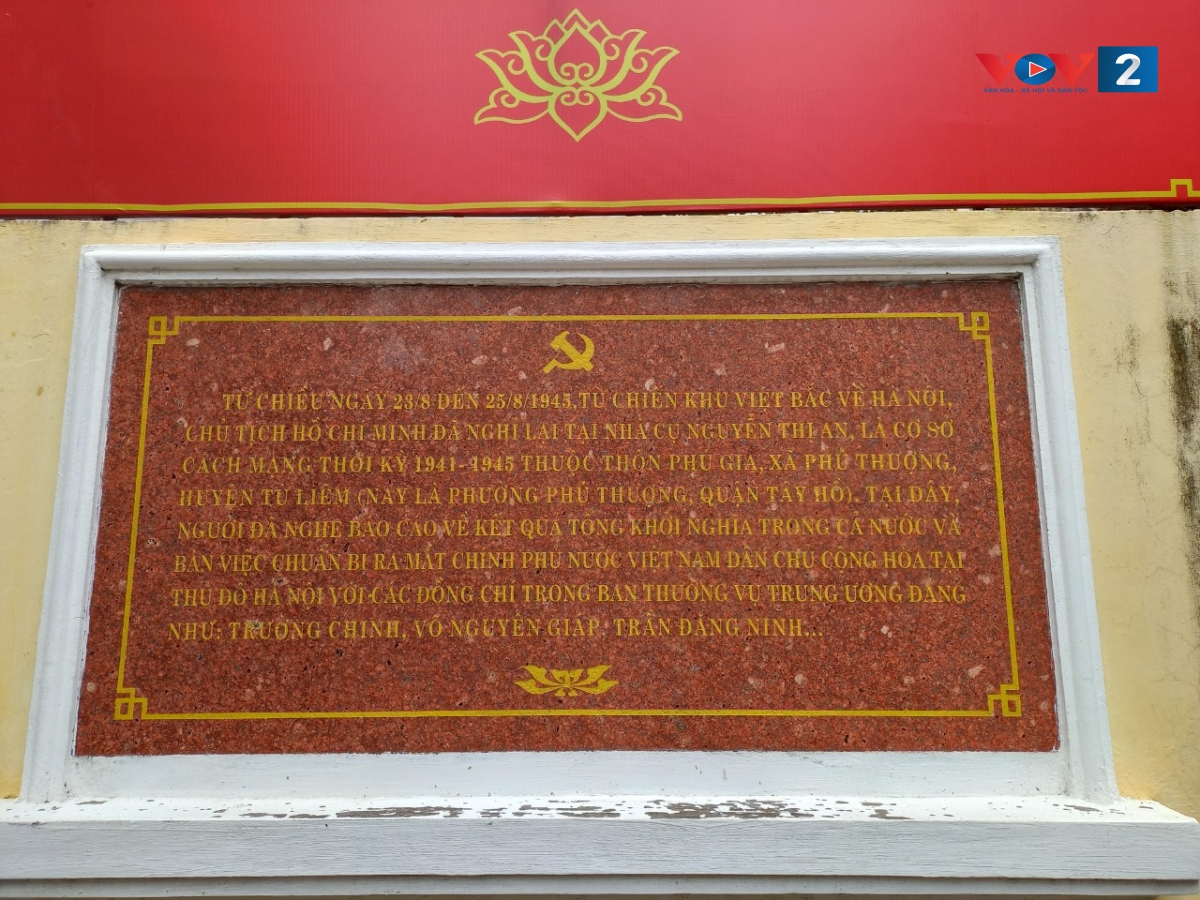 VOV 2
VĂN HÓA - XÃ HỘI VÀ DÂN TỘC
TỪ CHIỀU NGÀY 23/8 ĐẾN 25/8/1945, TỪ CHIẾN KHU VIỆT BẮC VỀ HÀ NỘI,
CHỦ TỊCH HỒ CHÍ MINH ĐÃ NGHỈ LẠI TẠI NHÀ CỤ NGUYỄN THỊ AN, LÀ CƠ SỞ
CÁCH MẠNG THỜI KỲ 1941-1945 THUỘC THÔN PHÚ GIA, XÃ PHÚ THƯỢNG,
HUYỆN TỪ LIÊM (NAY LÀ PHƯỜNG PHÚ THƯỢNG, QUẬN TÂY HỒ). TẠI ĐÂY,
NGƯỜI ĐÃ NGHE BÁO CÁO VỀ KẾT QUẢ TỔNG KHỞI NGHĨA TRONG CẢ NƯỚC VÀ
BÀN VIỆC CHUẨN BỊ RA MẮT CHÍNH PHỦ NƯỚC VIỆT NAM DÂN CHỦ CỘNG HÒA TẠI
THỦ ĐÔ HÀ NỘI VỚI CÁC ĐỒNG CHÍ TRONG BAN THƯỜNG VỤ TRUNG ƯƠNG ĐẢNG
NHƯ: TRƯỜNG CHINH, VÕ NGUYÊN GIÁP, TRẦN ĐĂNG NINH...